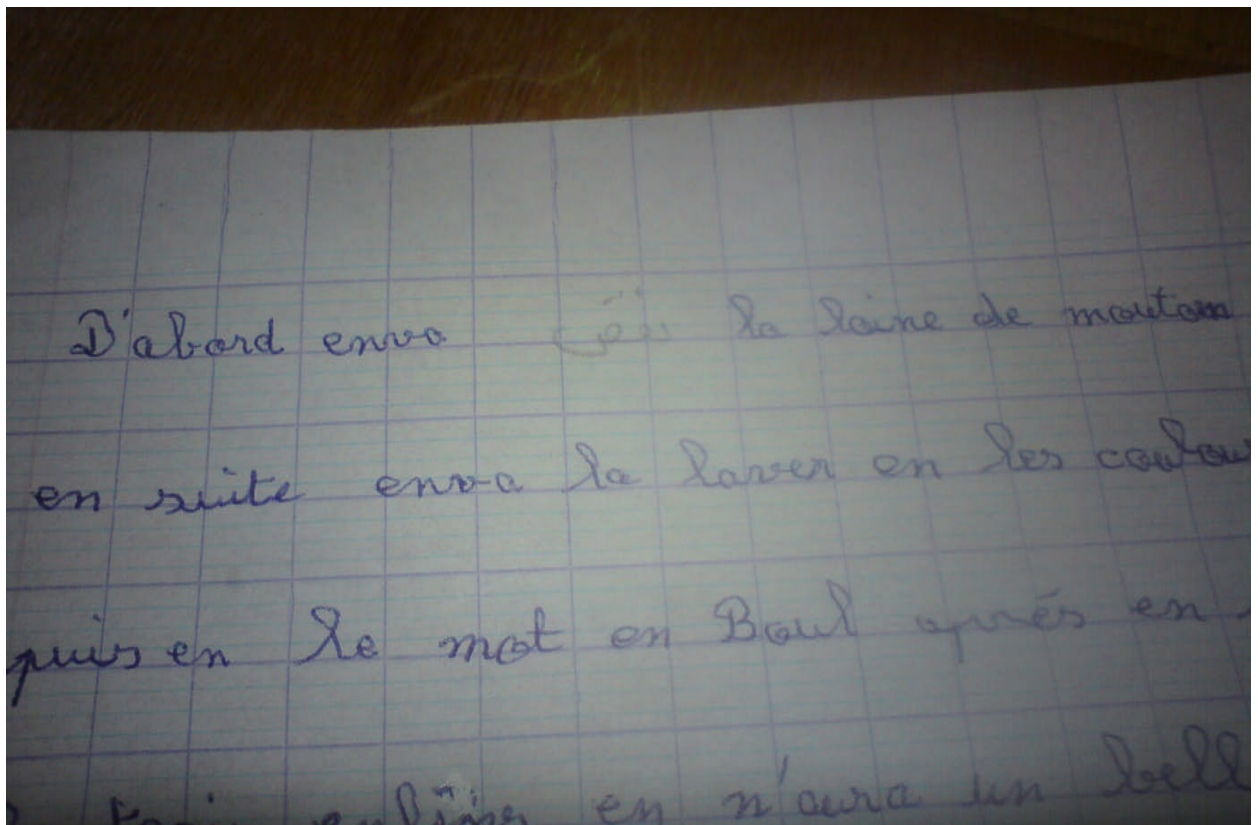 D'abord enva la laine de mouton
en suite enva la laver en les coulou
puis en le mot en Boul aprés en
en n'aura un bell